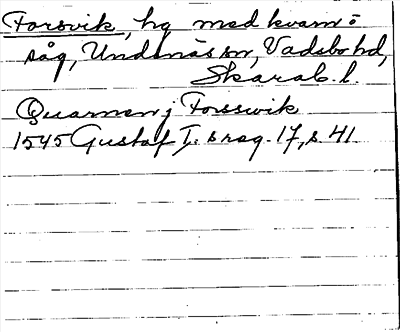 Forsvik, hg med kvarn o
såg, Undenäs sn, Vadsbo hd,
Skarab. l.
Quarnen j Forsswik
1545 Gustaf I:s reg. 17, s. 41